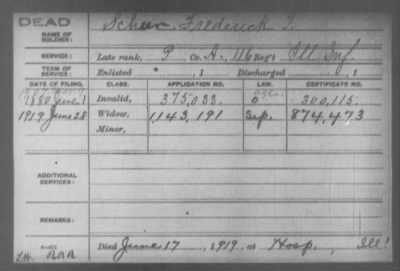 DEAD
NAME OF SOLDIER: Frederick
SERVICE: Late rank, P. Co. A, 46 Reg't Ill. Inf.
TERM OF SERVICE: Enlisted , 1 Discharged , 1
DATE OF FILING. CLASS. APPLICATION NO. LAW. CERTIFICATE NO.
1880 June 1 Invalid, 375,033 300,115
1919 June 28 Widow, 1,143,191 874,473
Minor,
ADDITIONAL SERVICES:
REMARKS:
Died June 17, 1919, at Hosp., Ill.